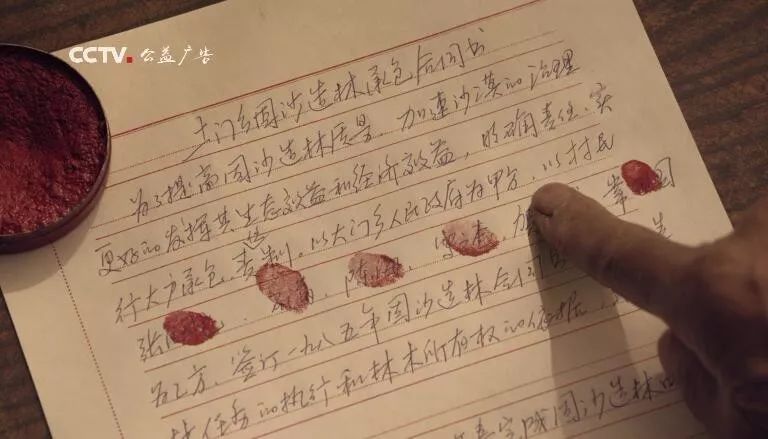 CCTV. 公益广告
土门乡固沙造林承包合同书
为了提高固沙造林质量,加速沙漠的治理
更好的发挥其生态效益和经济效益,明确责任、实
行大户承包 责任制。以土门乡人民政府为甲方,以村民
张
为乙方,签订一九八五年固沙造林合同书
任务的执行和林木所有权的依据
固沙造林